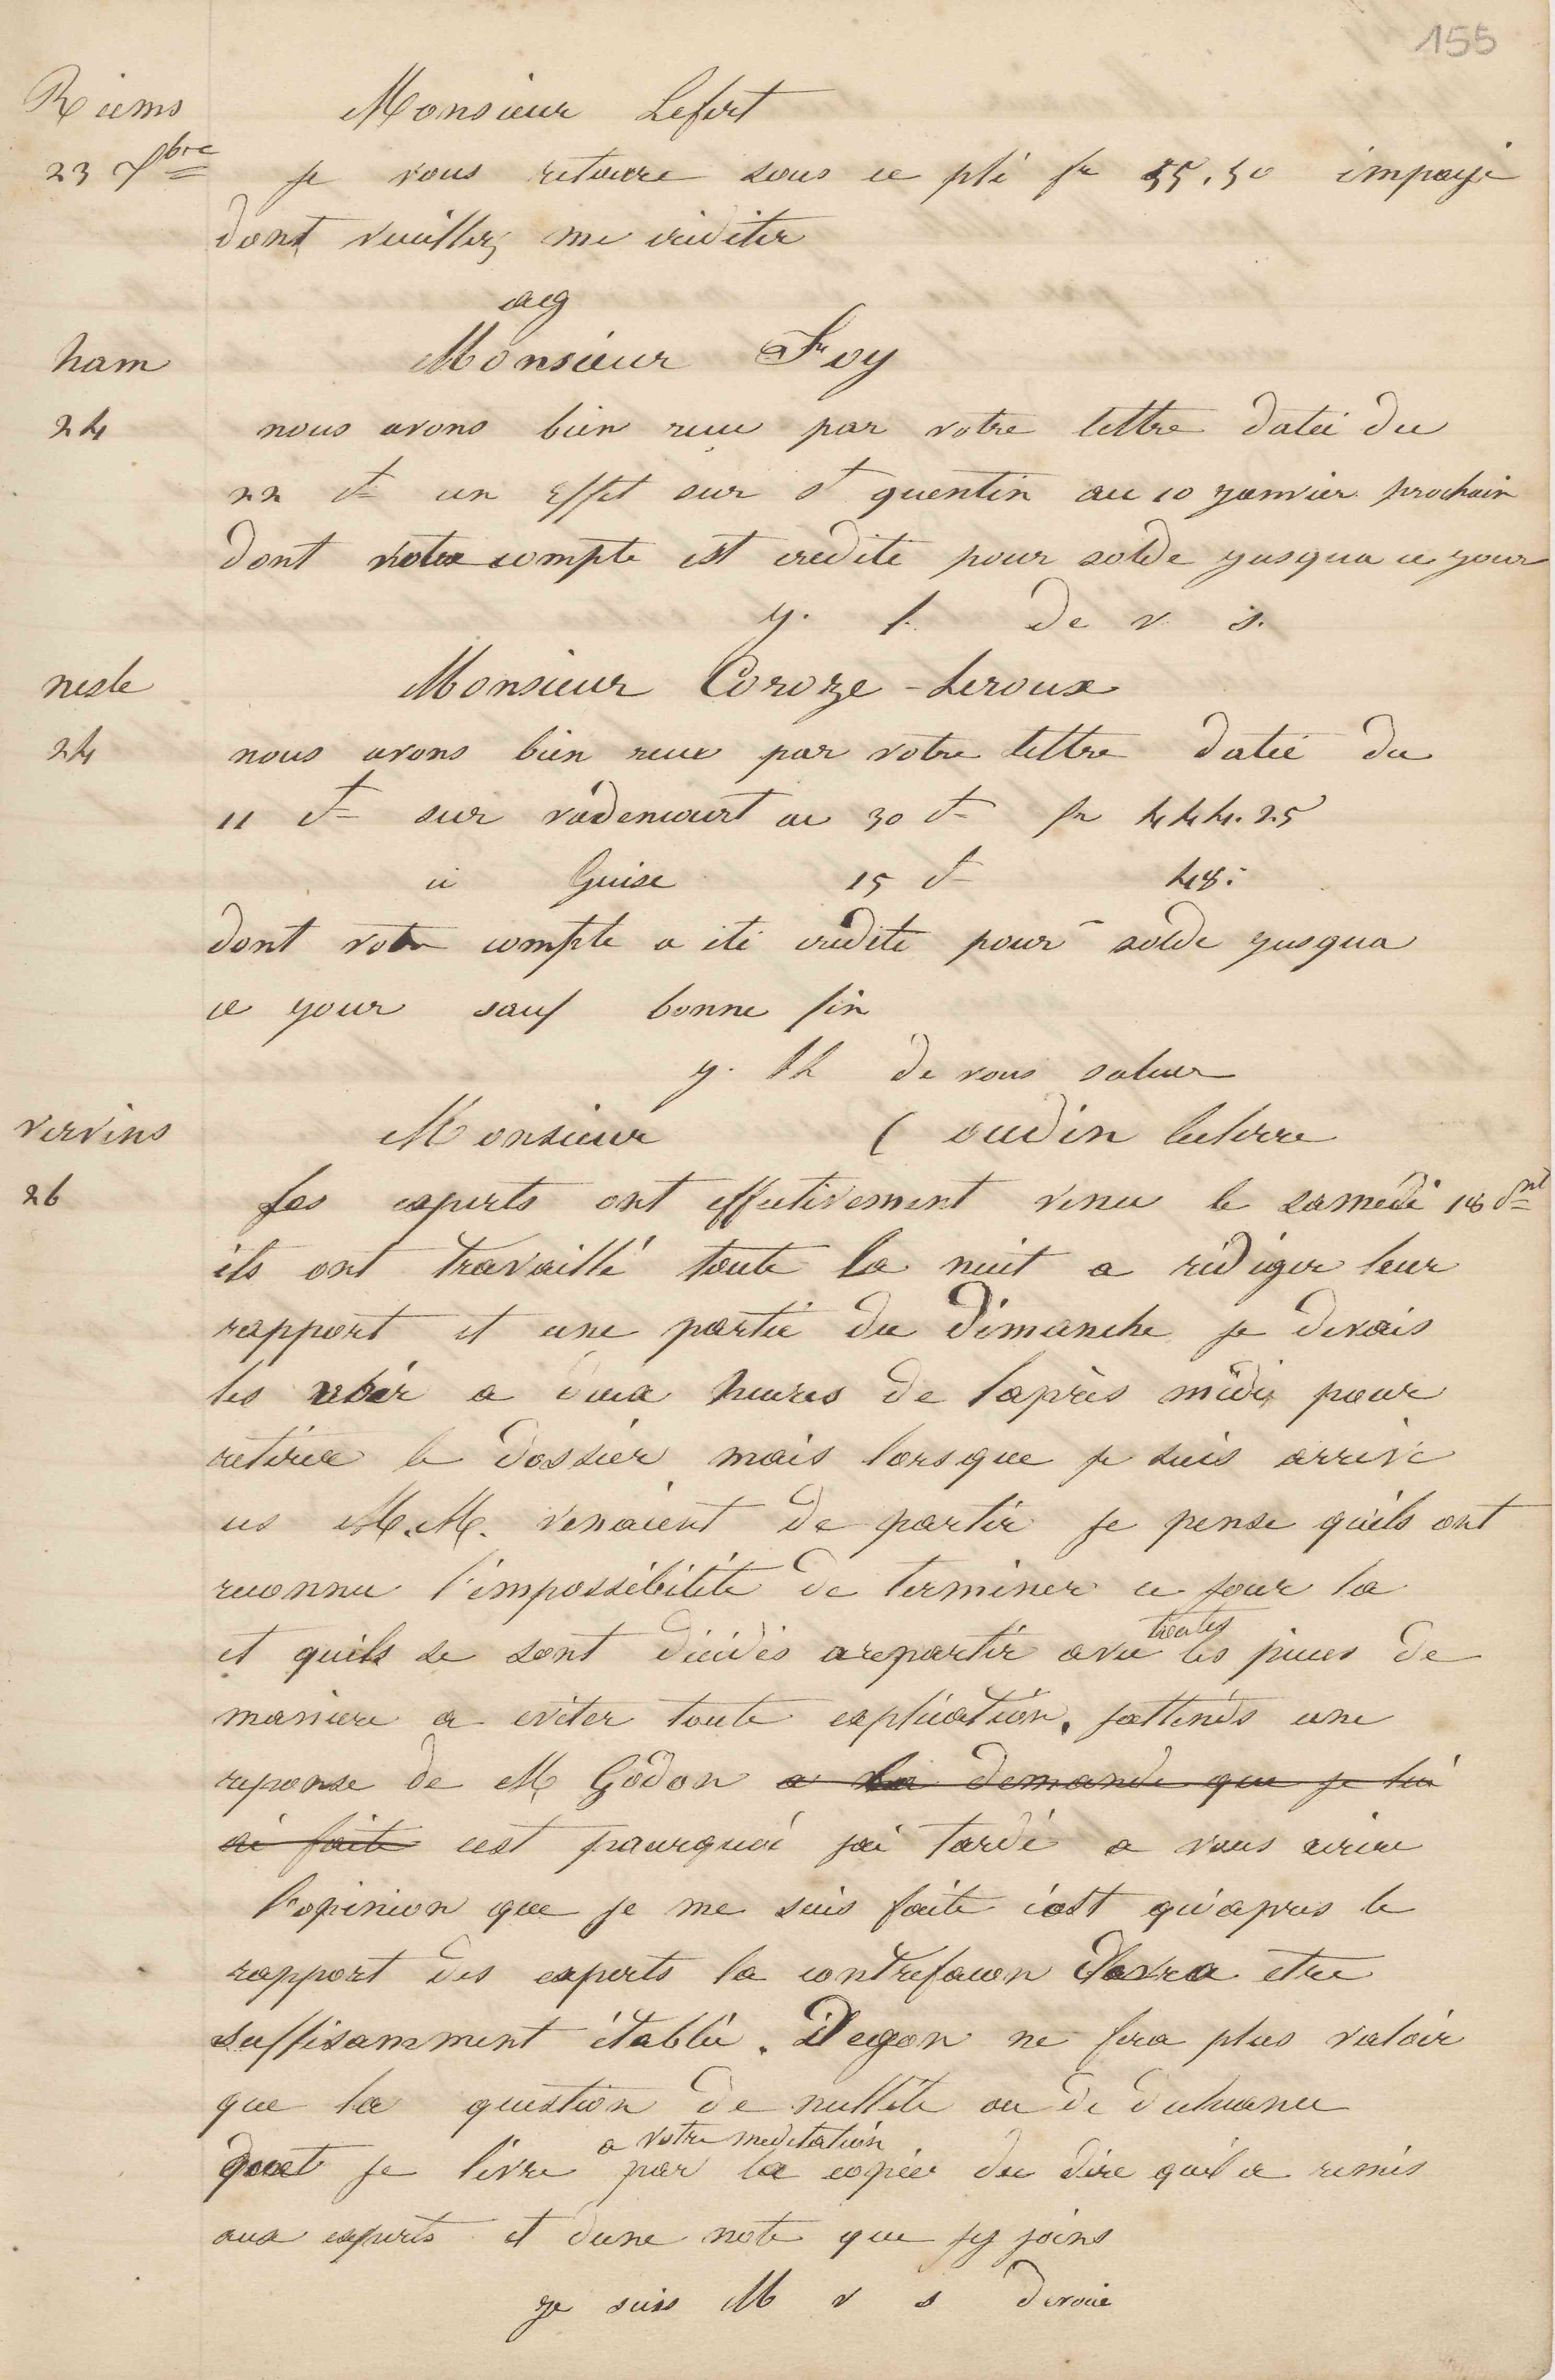 155
Reims
Monsieur Lefort
23 Xbre
je vous retourne sous ce pli fr 55.50 impayé
dont veuillez me créditer
acg
ham
Monsieur Foy
24
nous avons bien recu par votre lettre datée du
22 ct un Effet sur st quentin au 10 janvier prochain
dont votre compte est credite pour solde jusqua ce jour
j. l. de v. s.
nesle
Monsieur Coroze-Leroux
24
nous avons bien recu par votre lettre datée du
11 ct sur vadencourt au 30 ct fr 444.25
ci Guise 15 ct 48.
dont votre compte a été crédite pour solde jusqua
ce jour sauf bonne fin
j. lh de vous saluer
vervins
Monsieur ( oudin leclerre
26
Les experts ont effectivement venu le samedi 18 ct
ils ont travaillé toute la nuit a rédiger leur
rapport et une partie du dimanche je devais
les voir a deux heures de laprès midi pour
retirer le dossier mais lorsque je suis arrivé
ces M.M. venaient de partir je pense quils ont
reconnu l'impossibilité de terminer ce jour la
et quils se sont décidés a repartir avec toutes les pieces de
maniere a eviter toute explication. jattends une
reponse de M Godon a la demande que je lui
ai faite cest pourquoi jai tardé a vous ecrire
l'opinion que je me suis faite cest qu'apres le
rapport des experts la contrefacon devra etre
suffisamment établie. Degon ne fera plus valoir
que la question de nullité ou de decheance
dont je livre a votre meditation par la copie du dire qu'il a remis
aux experts et dune note que jy joins
je suis M v s devoué